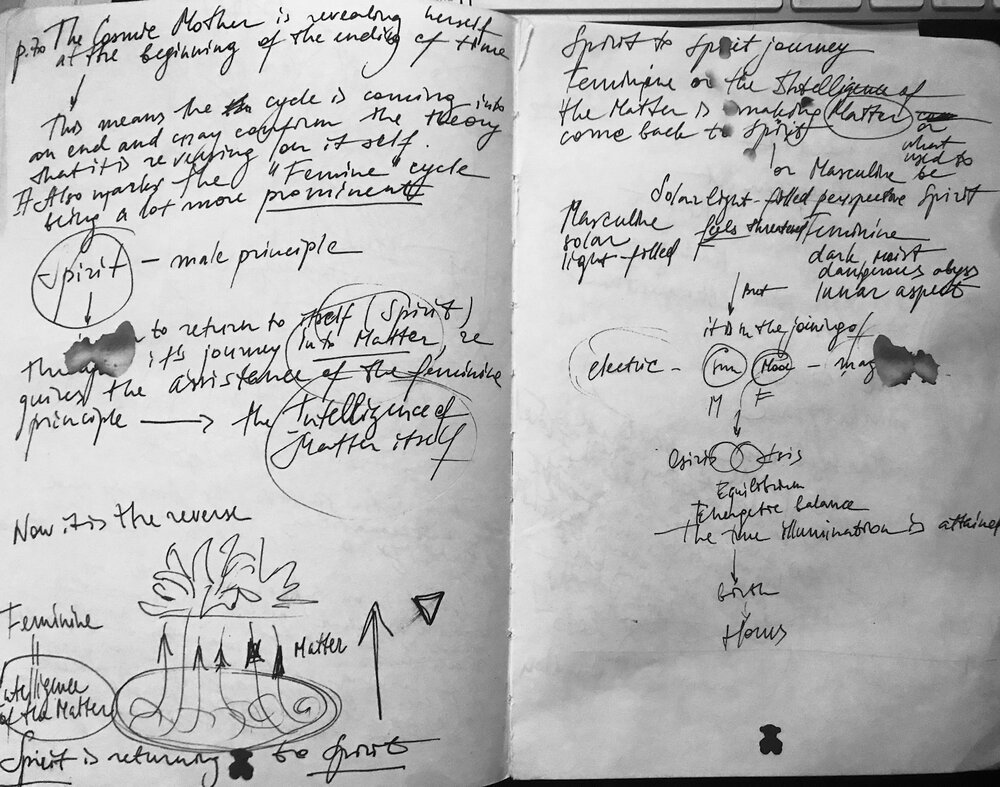 p.70 The Cosmic Mother is revealing herself
at the beginning of the ending of time
This means the cycle is coming into
an end and may confirm the theory
that it is reversing on it self.
Also marks the "Feminine" cycle
being a lot more prominent
Spirit – male principle
to return to itself (Spirit)
it's journey into Matter, re
quires the assistance of the feminine
principle → the Intelligence of
Matter itself
Now it is the reverse
Feminine
Matter
Intelligence
of the Matter
Spirit is returning to Spirit
Spirit to Spirit journey
Feminine or the Intelligence of
the Matter is making Matter
come back to Spirit
or
what
used to
be
or Masculine
Solar light-filled perspective Spirit
Masculine
solar
light-filled
feels threatened
Feminine
dark moist
dangerous abyss
lunar aspect
But
it is in the joining of
electric – Sun Moon – mag
M F
Osiris Isis
Equilibrium
Energetic balance
The true illumination is attained
birth
Horus